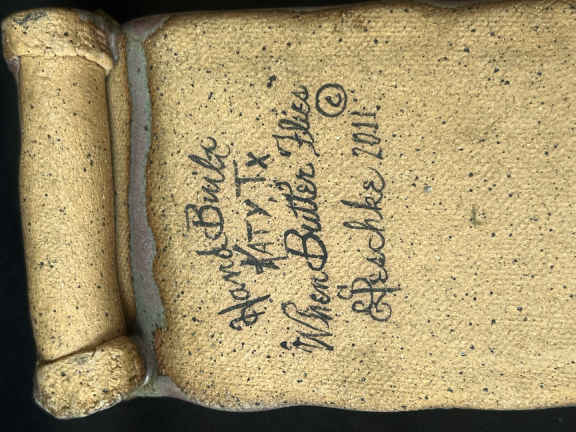 Hand Built
KATY, TX
When Butter Flies ©
Peschke 2011